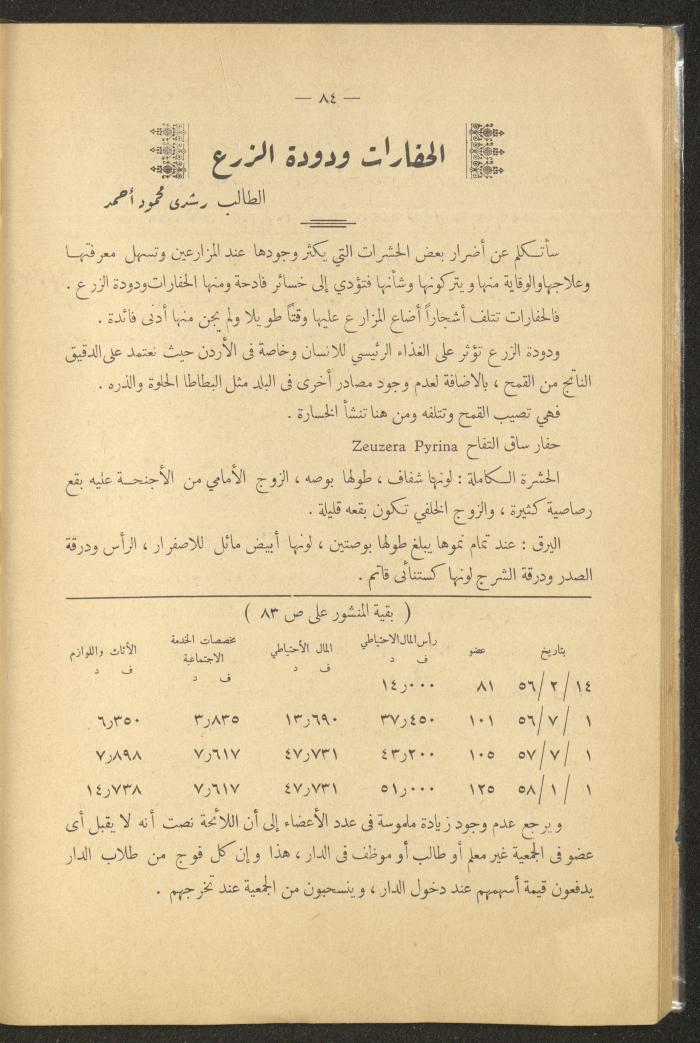 — ٨٤ —
الحفارات ودودة الزرع
الطالب رشدى محمود أحمد
سأتكلم عن أضرار بعض الحشرات التي يكثر وجودها عند المزارعين وتسهل معرفتها
وعلاجهاوالوقاية منها ويتركونها وشأنها فتؤدي إلى خسائر فادحة ومنها الحفارات ودودة الزرع .
فالحفارات تتلف أشجاراً أضاع المزارع عليها وقتاً طويلا ولم يجن منها أدنى فائدة .
ودودة الزرع تؤثر على الغذاء الرئيسي للانسان وخاصة فى الأردن حيث نعتمد على الدقيق
الناتج من القمح ، بالاضافة لعدم وجود مصادر أخرى فى البلد مثل البطاطا الحلوة والذره .
فهي تصيب القمح وتتلفه ومن هنا تنشأ الخسارة .
حفار ساق التفاح Zeuzera Pyrina
الحشرة الكاملة : لونها شفاف ، طولها بوصه ، الزوج الأمامي من الأجنحة عليه بقع
رصاصية كثيرة ، والزوج الخلفي تكون بقعه قليلة .
اليرق : عند تمام نموها يبلغ طولها بوصتين ، لونها أبيض مائل للاصفرار ، الرأس ودرقة
الصدر ودرقة الشرج لونها كستنائى قاتم .
( بقية المنشور على ص ٨٣ )
بتاريخ عضو رأس المال الاحتياطي المال الأحتياطي مخصصات الخدمة الاجتماعية الأثاث واللوازم
ف د ف د ف د ف د
١٤ / ٢ / ٥٦ ٨١ ١٤٫٠٠٠
١ / ٧ / ٥٦ ١٠١ ٣٧٫٤٥٠ ١٣٫٦٩٠ ٣٫٨٣٥ ٦٫٣٥٠
١ / ٧ / ٥٧ ١٠٥ ٤٣٫٢٠٠ ٤٧٫٧٣١ ٧٫٦١٧ ٧٫٨٩٨
١ / ١ / ٥٨ ١٢٥ ٥١٫٠٠٠ ٤٧٫٧٣١ ٧٫٦١٧ ١٤٫٧٣٨
ويرجع عدم وجود زيادة ملموسة فى عدد الأعضاء إلى أن اللائحة نصت أنه لا يقبل أى
عضو فى الجمعية غير معلم أو طالب أو موظف فى الدار ، هذا وإن كل فوج من طلاب الدار
يدفعون قيمة أسهمهم عند دخول الدار ، وينسحبون من الجمعية عند تخرجهم .